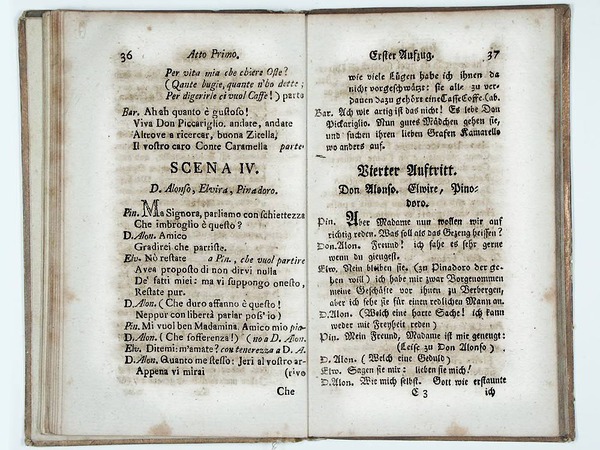 36 Atto Primo.
Per vita mia che cbiera Oste?
(Qante bugie, quante n'ho dette;
Per digerirle ci vuol Caffe!) parte
Bar. Ah ah quanto è gustoso!
Viva Don Piccariglio. andate, andate
Altrove a ricercar, buona Zitella,
Il vostro caro Conte Caramella parte
SCENA IV.
D. Alonso, Elvira, Pinadoro.
Pin. Ma Signora, parliamo con schiettezza
Che imbroglio è questo?
D. Alon. Amico
Gradirei che partiste.
Elv. Nò restate a Pin., che vuol partire
Avea proposto di non dirvi nulla
De' fatti miei: ma vi suppongo onesto,
Restate pur.
D. Alon. (Che duro affanno è questo!
Neppur con libertà parlar poss' io)
Pin. Mi vuol ben Madamina. Amico mio pia-
D. Alon. (Che sofferenza!) (no a D. Alon.
Elv. Ditemi: m'amate? con tenerezza a D. A.
D. Alon. Quanto me stesso: Jeri al vostro ar-
Appena vi mirai (rivo
Che
Erster Aufzug. 37
wie viele Lügen habe ich ihnen da
nicht vorgeschwäzt: sie alle zu ver-
dauen dazu gehört eine Tasse Coffe. (ab.
Bar. Ach wie artig ist das nicht! Es lebe Don
Piccariglio. Nun gutes Mädchen gehen sie,
und suchen ihren lieben Grafen Kamarello
wo anders auf.
Vierter Auftritt.
Don Alonso. Elwire, Pino-
doro.
Pin. Aber Madame nun wollen wir auf
richtig reden. Was soll als das Gezeng heissen?
Don. Alon. Freund! ich sähe es sehr gerne
wenn du giengest.
Elw. Nein bleiben sie. (zu Pinadoro der ge-
hen will) ich habe mir zwar Vorgenommen
meine Geschäfte vor ihnen zu Verbergen,
aber ich sehe sie für einen redlichen Mann an.
D. Alon. (Welch eine harte Sache! ich kann
weder mit Freyheit reden)
Pin. Mein Freund, Madame ist mir geneugt:
(Leise zu Don Alonso)
D. Alon. (Welch eine Gedult)
Elw. Sagen sie mir: lieben sie mich!
D. Alon. Wie mich selbst. Gott wie erstaunte
E 3 ich